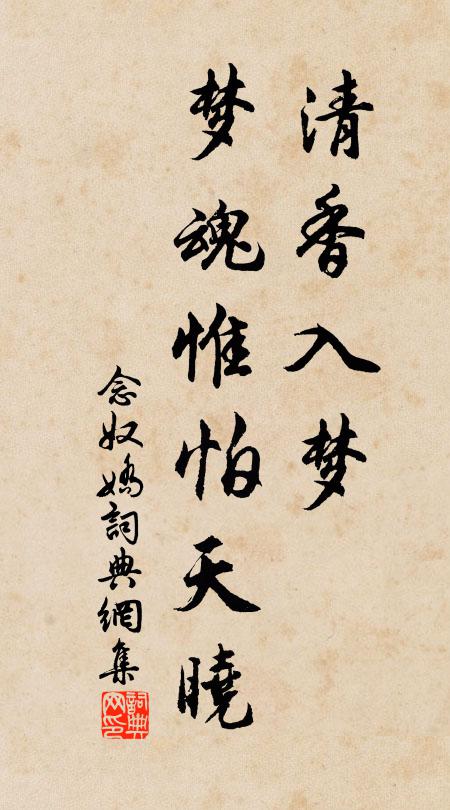 清香入梦
梦魂惟怕天曉
念奴嬌詞典網集
詞典
网印